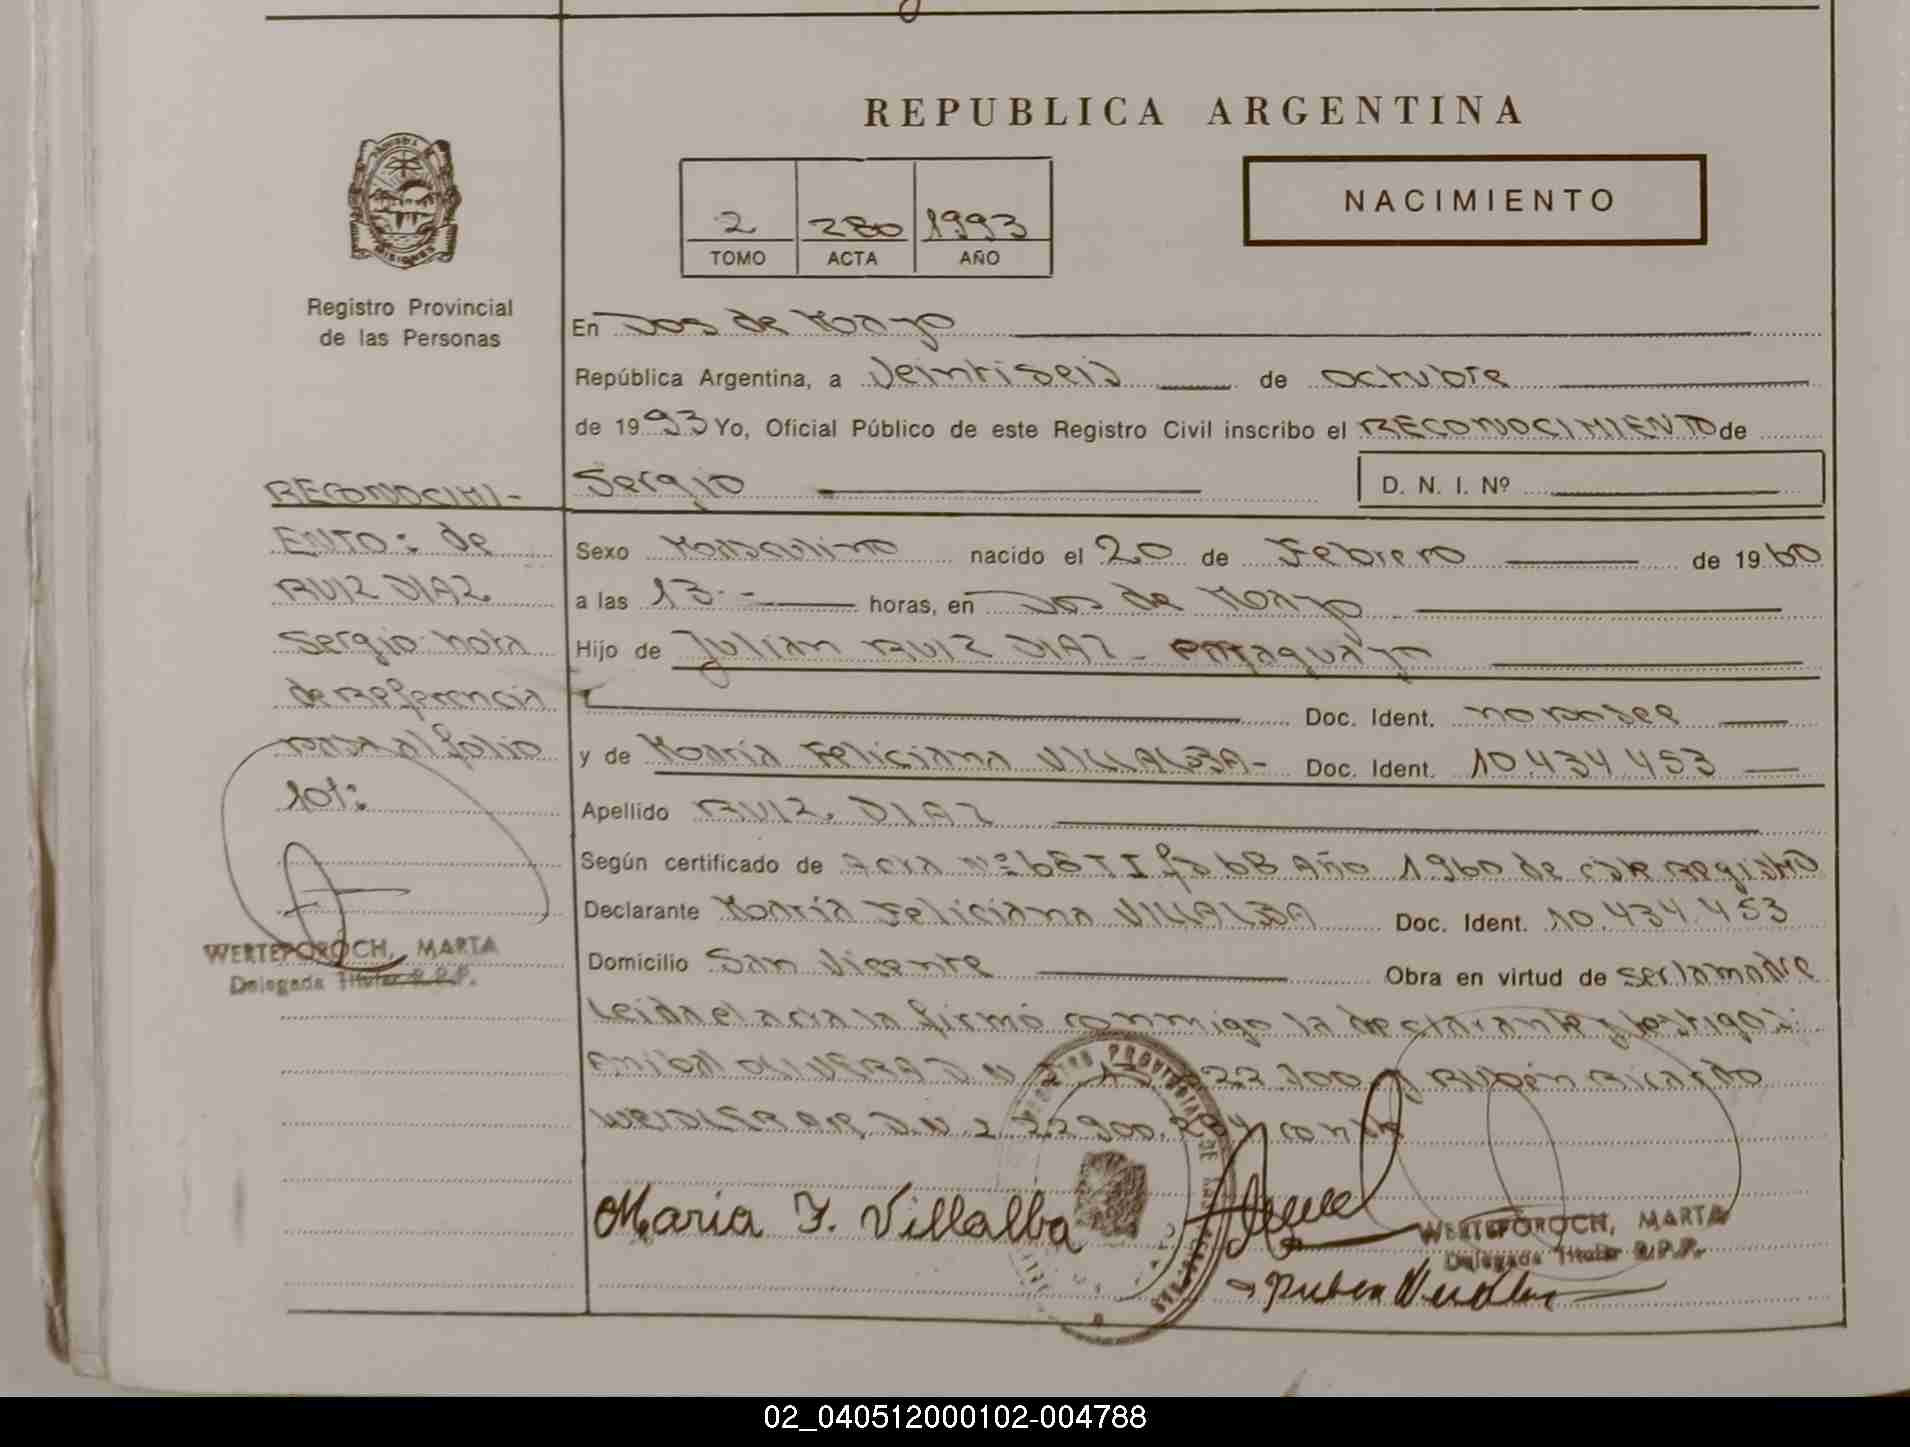 REPUBLICA ARGENTINA
NACIMIENTO
2 280 1993
TOMO ACTA AÑO
Registro Provincial
de las Personas
En Dos de Mayo
República Argentina, a Veintiseis de Octubre
de 1993 Yo, Oficial Público de este Registro Civil inscribo el RECONOCIMIENTO de
Sergio D. N. I. Nº
Sexo Masculino nacido el 20 de Febrero de 1960
a las 13 horas, en Dos de Mayo
Hijo de Julian RUIZ DIAZ - Paraguayo
Doc. Ident. no posee
y de María Feliciana VILLALBA - Doc. Ident. 10.434.453
Apellido RUIZ DIAZ
Según certificado de Acta Nº 68 T I fº 68 Año 1960 de este Registro
Declarante María Feliciana VILLALBA Doc. Ident. 10.434.453
Domicilio San Vicente Obra en virtud de ser la madre
Leida el acta la firmó conmigo la declarante y testigos:
Anibal OLIVERA D N I 22.300 y Rubén Ricardo
D.N.I 22.900.
Maria F. Villalba
WERTEPOROCH, MARTA
Delegada Titular R.P.P.
Ruben
RECONOCIMI-
ENTO: de
RUIZ DIAZ
Sergio nota
de Referencia
pasa al folio
101:
WERTEPOROCH, MARTA
Delegada Titular R.P.P.
02_040512000102-004788